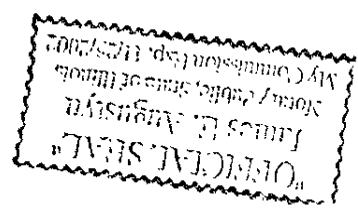 "OFFICIAL SEAL"
James E. Augustyn
Notary Public, State of Illinois
My Commission Exp. 11/25/2002